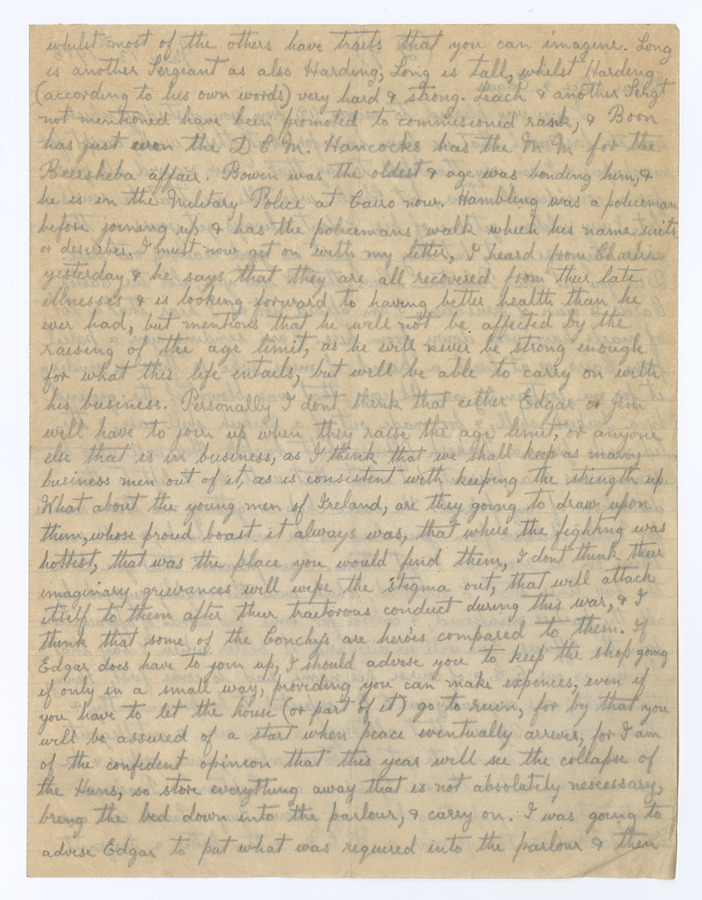 whilst most of the others have traits that you can imagine. Long
is another Sergeant as also Harding, Long is tall, whilst Harding
(according to his own words) very hard & strong. Leach & another Sergt
not mentioned have been promoted to commisioned rank, & Boon
has just won the D C M. Hancocks has the M. M for the
Beersheba affair. Bowen was the oldest & age was bending him, &
he is in the Military Police at Cairo now. Hambling was a policeman
before joining up & has the policemans walk which his name suits
or describes. I must now get on with my letter, I heard from Charlie
yesterday & he says that they are all recovered from their late
illnesses & is looking forward to having better health than he
ever had, but mentions that he will not be affected by the
raising of the age limit, as he will never be strong enough
for what this life entails, but will be able to carry on with
his business. Personally I dont think that either Edgar or Jim
will have to join up when they raise the age limit, or anyone
else that is in business, as I think that we shall keep as many
business men out of it, as is consistent with keeping the strength up.
What about the young men of Ireland, are they going to draw upon
them, whose proud boast it always was, that where the fighting was
hottest, that was the place you would find them, I dont think their
imaginary grievances will wipe the stigma out, that will attack
itself to them after their traitorous conduct during this war, & I
think that some of the Conchys are heroes compared to them. If
Edgar does have to join up, I should advise you to keep the shop going
if only in a small way, providing you can make expences, even if
you have to let the house (or part of it) go to ruin, for by that you
will be assured of a start when peace eventually arrives, for I am
of the confident opinion that this year will see the collapse of
the Huns, so store everything away that is not absolutely nescessary,
bring the bed down into the parlour, & carry on. I was going to
advise Edgar to put what was required into the parlour & then